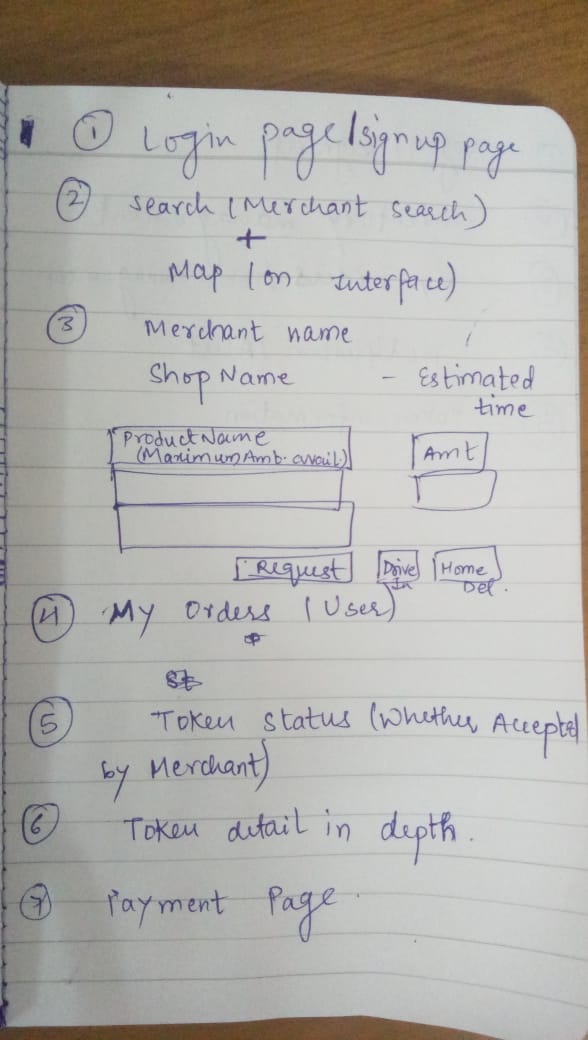 ① Login page/signup page
② search (Merchant search)
+
Map (on Interface)
③ Merchant name
Shop Name - Estimated
time
Product Name
(Maximum Amt. avail.) Amt
Request Drive In Home Del.
④ My Orders (User)
⑤ Token status (Whether Accepted
by Merchant)
⑥ Token detail in depth.
⑦ Payment Page.